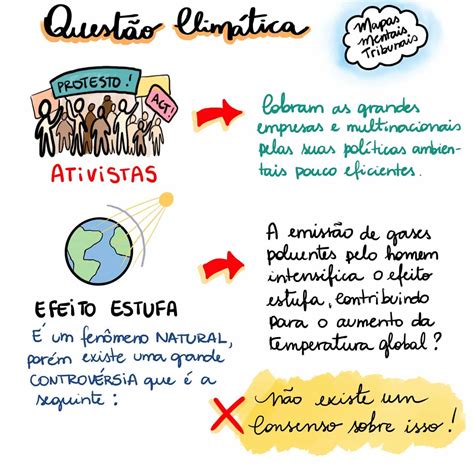 Questão Climática
Mapas
Mentais
Tribunais
PROTESTO!
ACT!
ATIVISTAS
Cobram as grandes
empresas e multinacionais
pelas suas políticas ambien-
tais pouco eficientes.
EFEITO ESTUFA
É um fenômeno NATURAL,
porém existe uma grande
CONTROVÉRSIA que é a
seguinte:
A emissão de gases
poluentes pelo homem
intensifica o efeito
estufa, contribuindo
para o aumento da
temperatura global?
Não existe um
Consenso sobre isso!